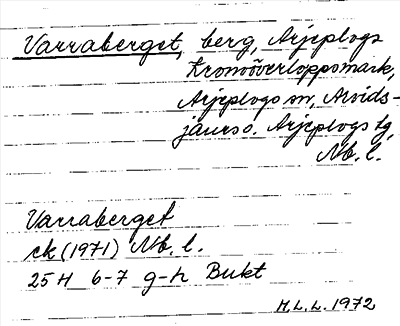 Varraberget, berg, Arjeplogs
Kronoöverloppsmark,
Arjeplogs sn, Arvids-
jaurs o. Arjeplogs tg,
Nb. l.
Varraberget
ek (1971) Nb. l.
25 H 6-7 g-h Bukt
H.L.L. 1972